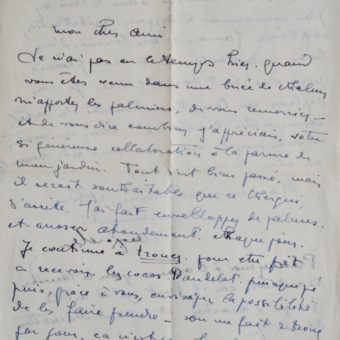 mon cher ami
Je n'ai pas eu le temps hier, quand
vous êtes venu dans une buée de chaleur
m'apporter les palmiers, de vous remercier –
et de vous dire combien j'appréciais votre
si généreuse collaboration à la parure de
mon jardin. Tout s'est bien passé, mais
il serait souhaitable que ce
s'arrête. J'ai fait envelopper de palmes.
et arroser abondamment, chaque jour.
Je continue à trouer pour être prêt
à recevoir les cocos Dandelot, puisque je
puis, grâce à vous, envisager la possibilité
de les faire prendre – on me fait 2 trous
par jour,